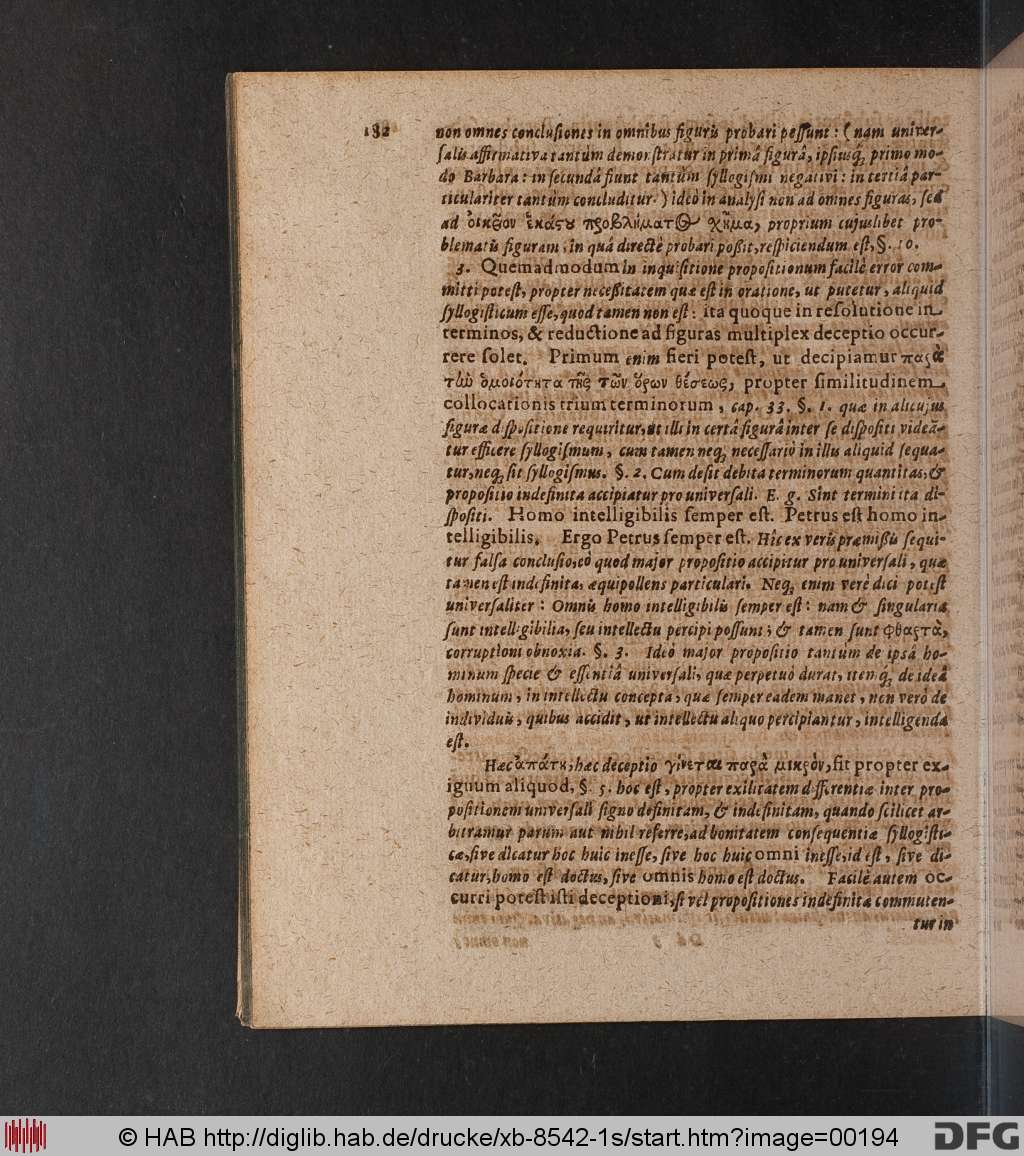 182
non omnes conclusiones in omnibus figuris probari possunt: (nam univer-
salis affirmativa tantùm demonstratur in primâ figurâ, ipsiusq́; primo mo-
do Barbara: in secundâ fiunt tantùm syllogismi negativi: in tertiâ par-
ticulariter tantùm concluditur.) ideò in analysi non ad omnes figuras, sed
ad οἰκεῖον ἑκάςου προβλήματος χῆμα, proprium cujuslibet pro-
blematis figuram, in quâ directè probari poßit, respiciendum est, §. 10.
3. Quemadmodum in inquisitione propositionum facilè error com-
mitti potest, propter neceßitatem quæ est in oratione, ut putetur, aliquid
syllogisticum esse, quod tamen non est: ita quoque in resolutione in
terminos, & reductione ad figuras multiplex deceptio occur-
rere solet. Primum enim fieri potest, ut decipiamur παρὰ
τὼ ὁμοιότητα τῆς τῶν ὅρων θέσεως, propter similitudinem
collocationis trium terminorum, cap. 33. §. 1. quæ in alicujus
figuræ dispositione requiritur, ut illi in certâ figurâ inter se dispositi videã-
tur efficere syllogismum, cum tamen neq; necessariò in illis aliquid sequa-
tur, neq; sit syllogismus. §. 2. Cum desit debita terminorum quantitas, &
propositio indefinita accipiatur pro universali. E. g. Sint termini ita di-
spositi. Homo intelligibilis semper est. Petrus est homo in-
telligibilis. Ergo Petrus semper est. Hic ex veris præmißis sequi-
tur falsa conclusio, eò quod major propositio accipitur pro universali, quæ
tamen est indefinita, æquipollens particulari. Neq; enim verè dici potest
universaliter: Omnis homo intelligibilis semper est: nam & singularia
sunt intelligibilia, seu intellectu percipi possunt; & tamen sunt φθαρτὰ,
corruptioni obnoxia. §. 3. Ideò major propositio tantum de ipsâ ho-
minum specie & essentiâ universali, quæ perpetuò durat, itemq́; de ideâ
hominum, in intellectu concepta, quæ semper eadem manet, non verò de
individuis, quibus accidit, ut intellectu aliquo percipiantur, intelligenda
est.
Hæc ἀπάτη, hæc deceptio γίνεται παρὰ μικρὸν, fit propter ex-
iguum aliquod, §. 5. hoc est, propter exilitatem differentiæ inter pro-
positionem universali signo definitam, & indefinitam, quando scilicet ar-
bitramur parum aut nihil referre, ad bonitatem consequentiæ syllogisti-
cæ, sive dicatur hoc huic inesse, sive hoc huic omni inesse, id est, sive di-
catur, homo est doctus, sive omnis homo est doctus. Facilè autem oc-
curri potest isti deceptioni, si vel propositiones indefinitæ commuten-
tur in
© HAB http://diglib.hab.de/drucke/xb-8542-1s/start.htm?image=00194
DFG